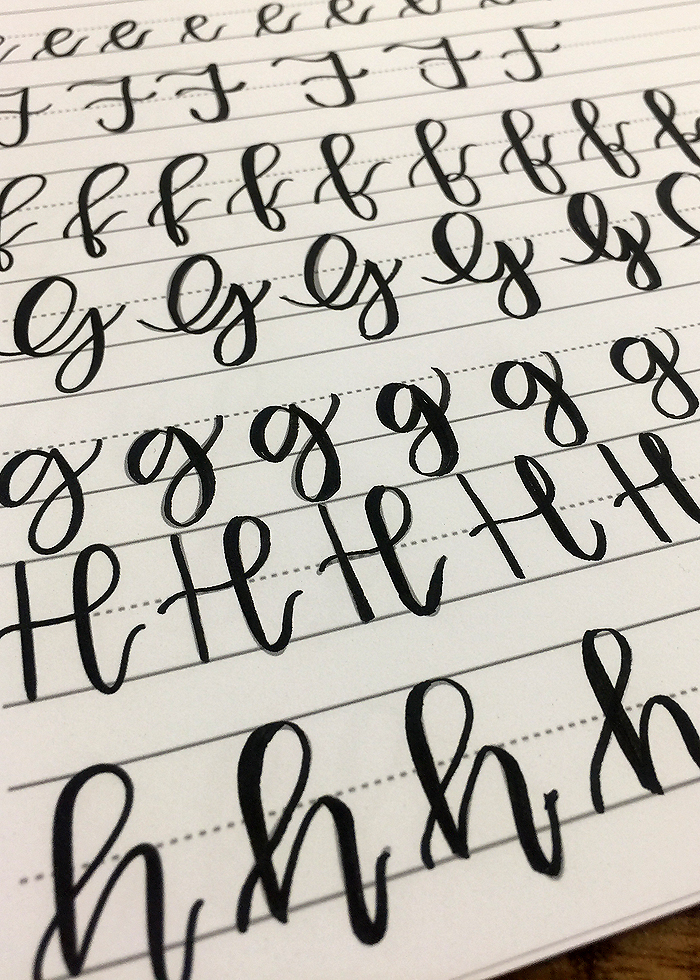 e e e e e e e e
F F F F F F
f f f f f f f f f
G G G G G G
g g g g g g
H H H H H
h h h h